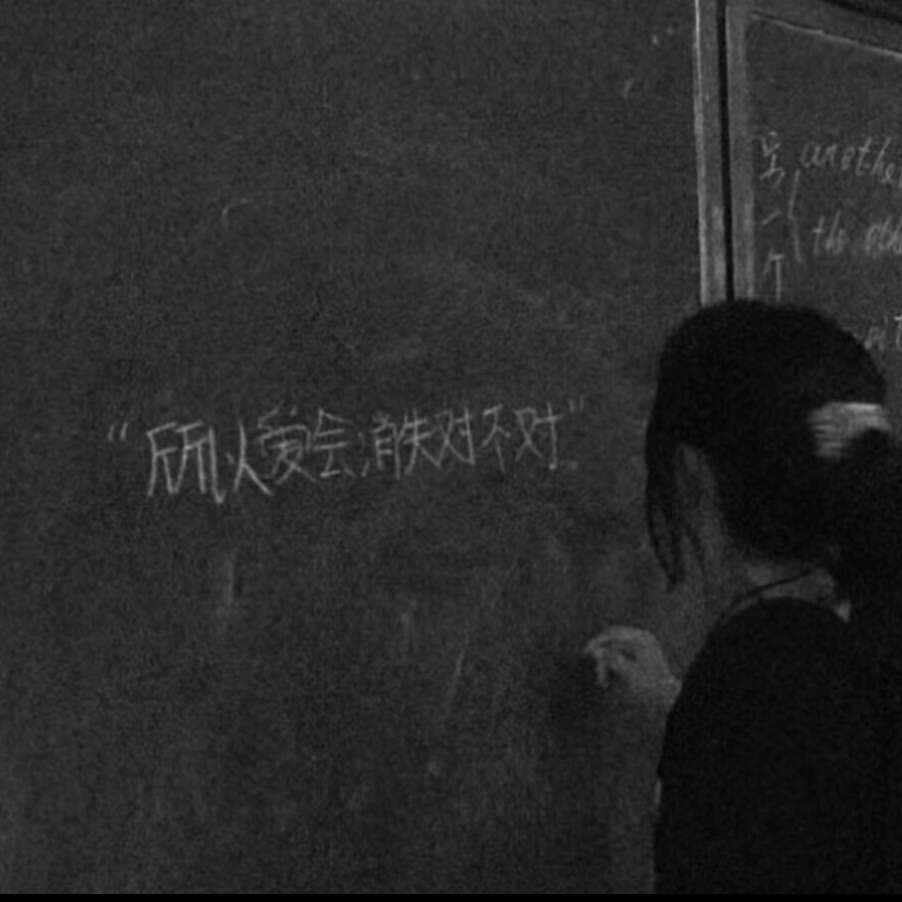 “所以爱会消失对不对”
另一个
another
the